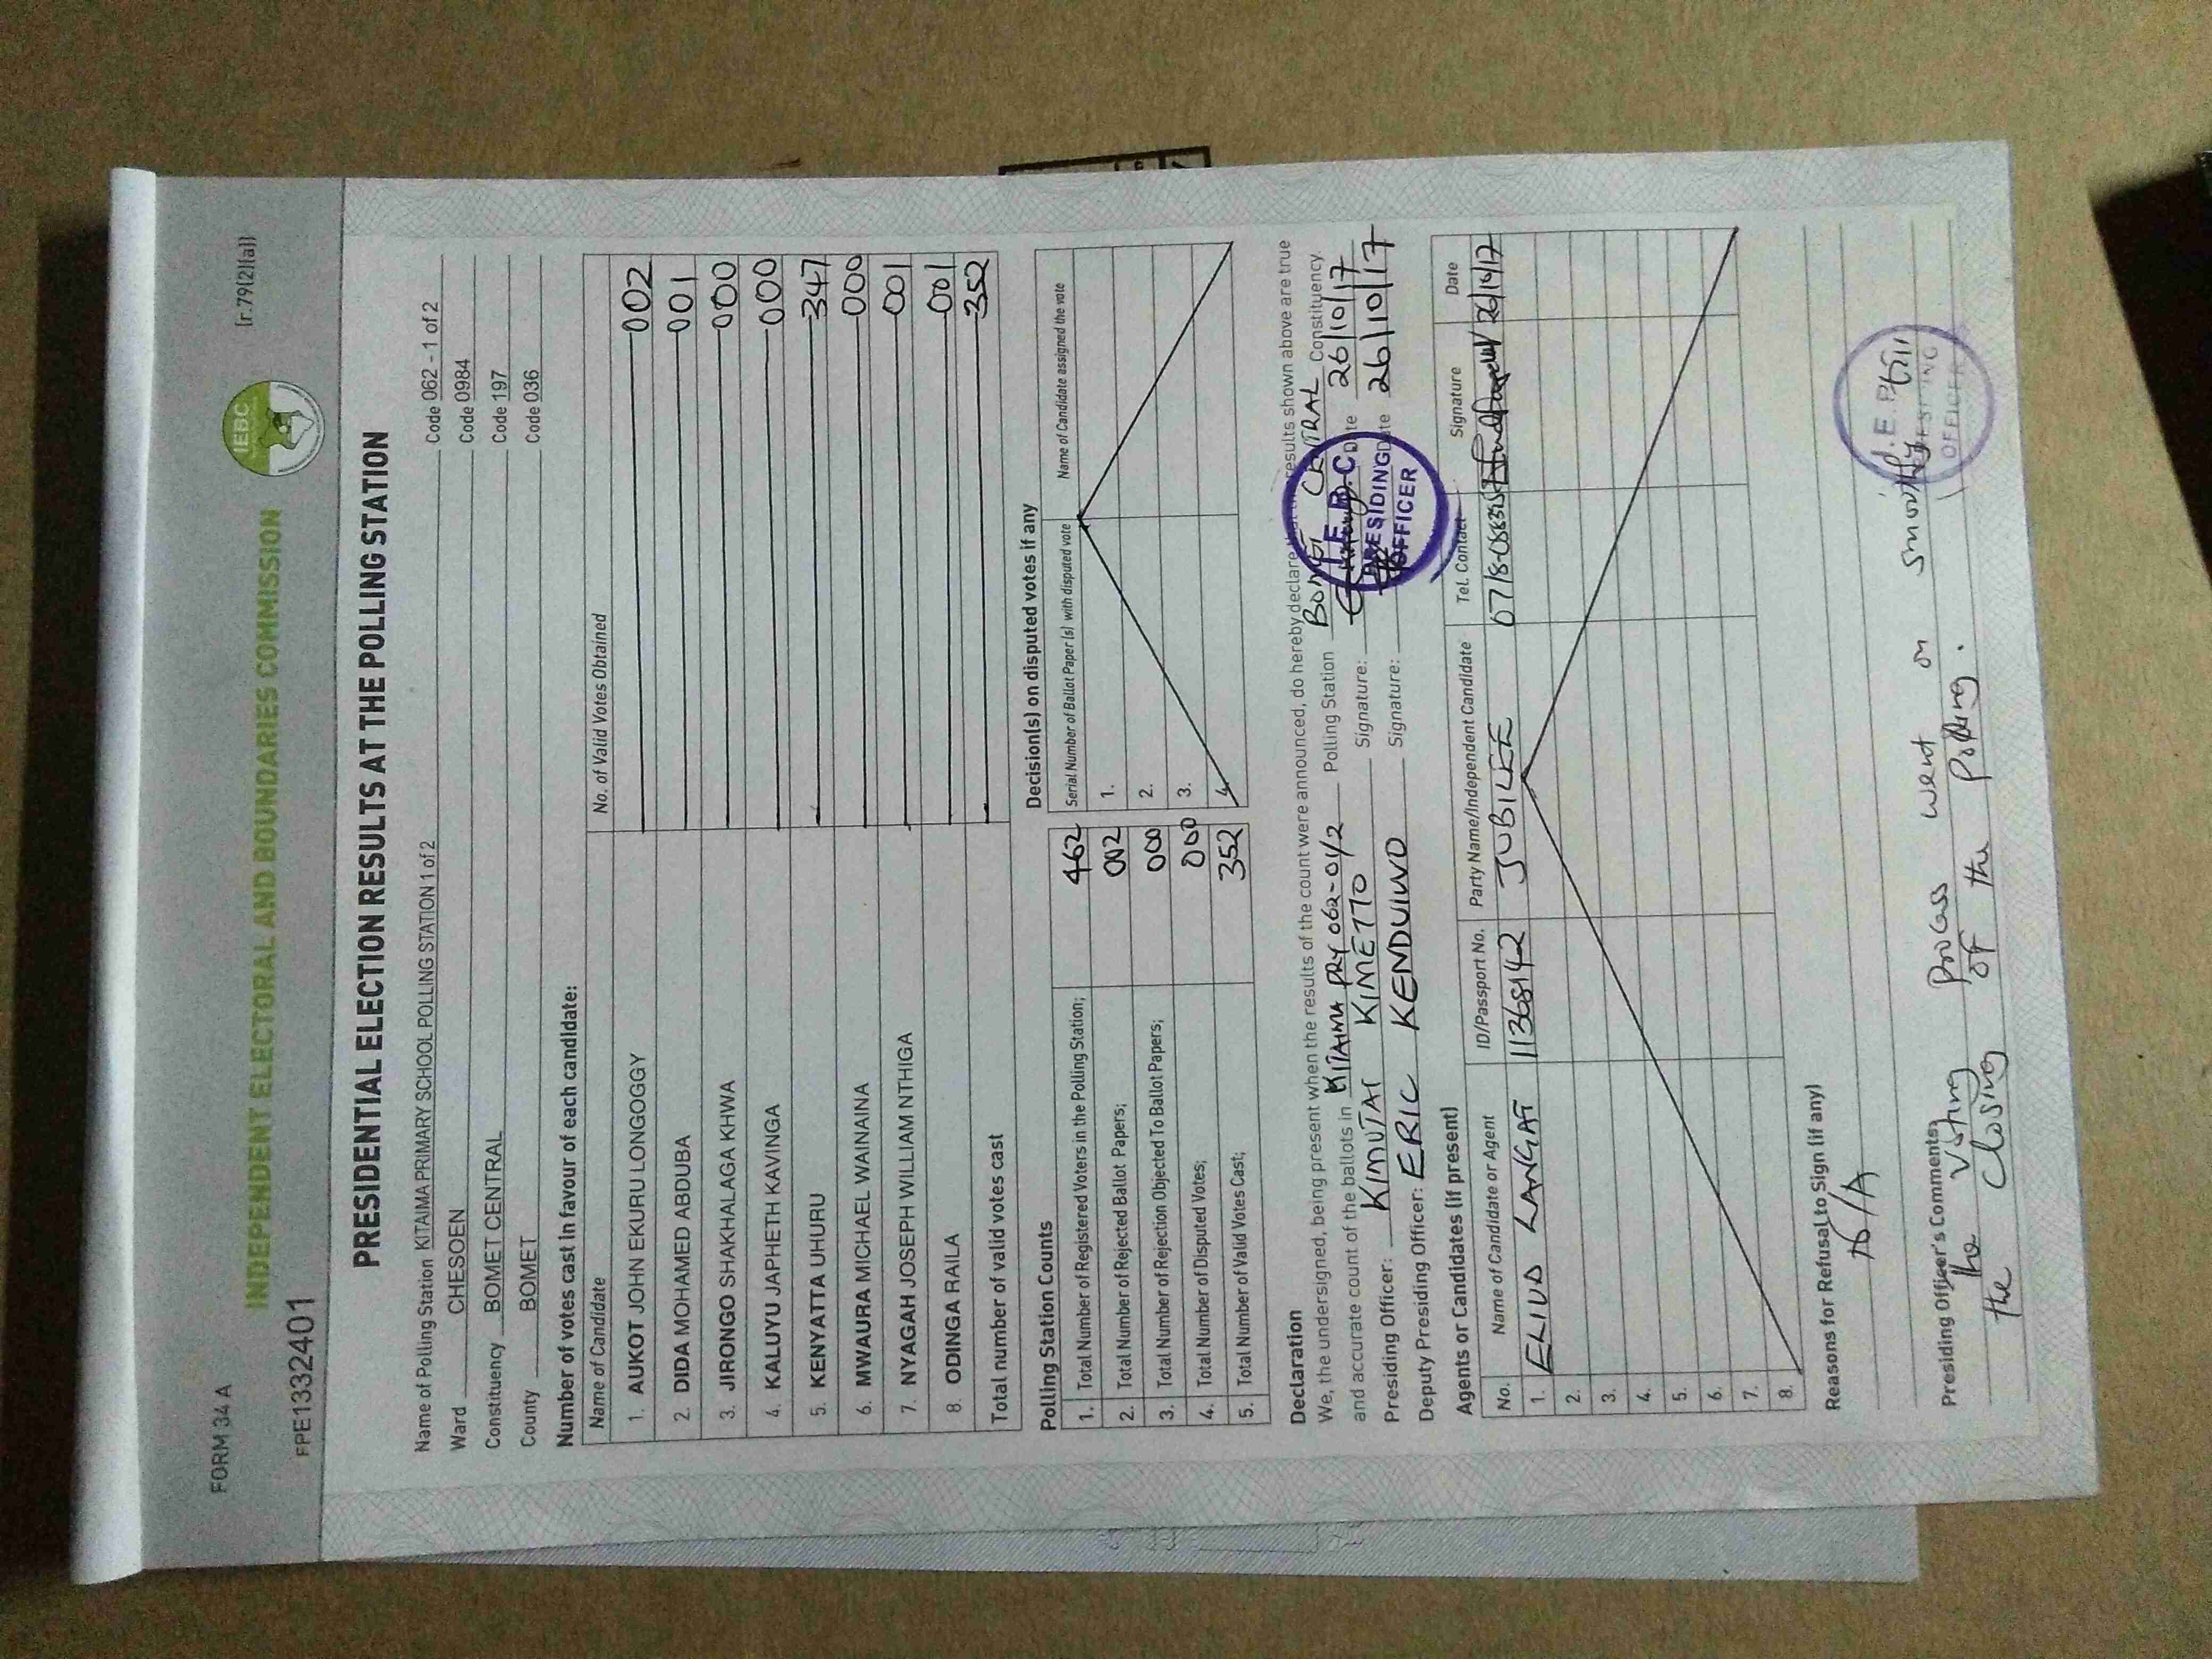 FORM 34 A
[r.79(2)(a)]
IEBC
INDEPENDENT ELECTORAL AND BOUNDARIES COMMISSION
FPE1332401
PRESIDENTIAL ELECTION RESULTS AT THE POLLING STATION
Name of Polling Station KITAIMA PRIMARY SCHOOL POLLING STATION 1 of 2 Code 062 - 1 of 2
Ward CHESOEN Code 0984
Constituency BOMET CENTRAL Code 197
County BOMET Code 036
Number of votes cast in favour of each candidate:
Name of Candidate No. of Valid Votes Obtained
1. AUKOT JOHN EKURU LONGOGGY 002
2. DIDA MOHAMED ABDUBA 001
3. JIRONGO SHAKHALAGA KHWA 000
4. KALUYU JAPHETH KAVINGA 000
5. KENYATTA UHURU 347
6. MWAURA MICHAEL WAINAINA 000
7. NYAGAH JOSEPH WILLIAM NTHIGA 001
8. ODINGA RAILA 001
Total number of valid votes cast 352
Polling Station Counts
1. Total Number of Registered Voters in the Polling Station; 462
2. Total Number of Rejected Ballot Papers; 002
3. Total Number of Rejection Objected To Ballot Papers; 000
4. Total Number of Disputed Votes; 000
5. Total Number of Valid Votes Cast; 352
Decision(s) on disputed votes if any
Serial Number of Ballot Paper (s) with disputed vote Name of Candidate assigned the vote
1.
2.
3.
4.
Declaration
We, the undersigned, being present when the results of the count were announced, do hereby declare that the results shown above are true
and accurate count of the ballots in KITAIMA PRY 062-01/2 Polling Station BOMET CENTRAL Constituency.
Presiding Officer: KIMUTAI KIMETTO Signature: Date 26/10/17
Deputy Presiding Officer: ERIC KENDUIWO Signature: Date 26/10/17
I.E.B.C.
PRESIDING
OFFICER
Agents or Candidates (if present)
No. Name of Candidate or Agent ID/Passport No. Party Name/Independent Candidate Tel. Contact Signature Date
1. ELIUD LANGAT 11368142 JUBILEE 26/10/17
2.
3.
4.
5.
6.
7.
8.
Reasons for Refusal to Sign (if any)
N/A
Presiding Officer's Comments;
The voting process went on smoothly till
the closing of the polling.
I.E.B.C.
PRESIDING
OFFICER